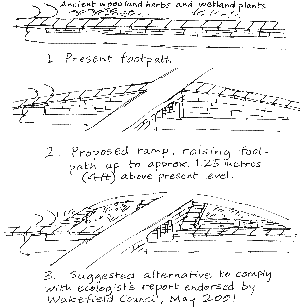 Ancient woodland herbs and wetland plants
1. Present footpath.
2. Proposed ramp, raising foot-
path up to approx. 1.25 metres
(4ft) above present level.
3. Suggested alternative to comply
with ecologist's report endorsed by
Wakefield Council, May 2001